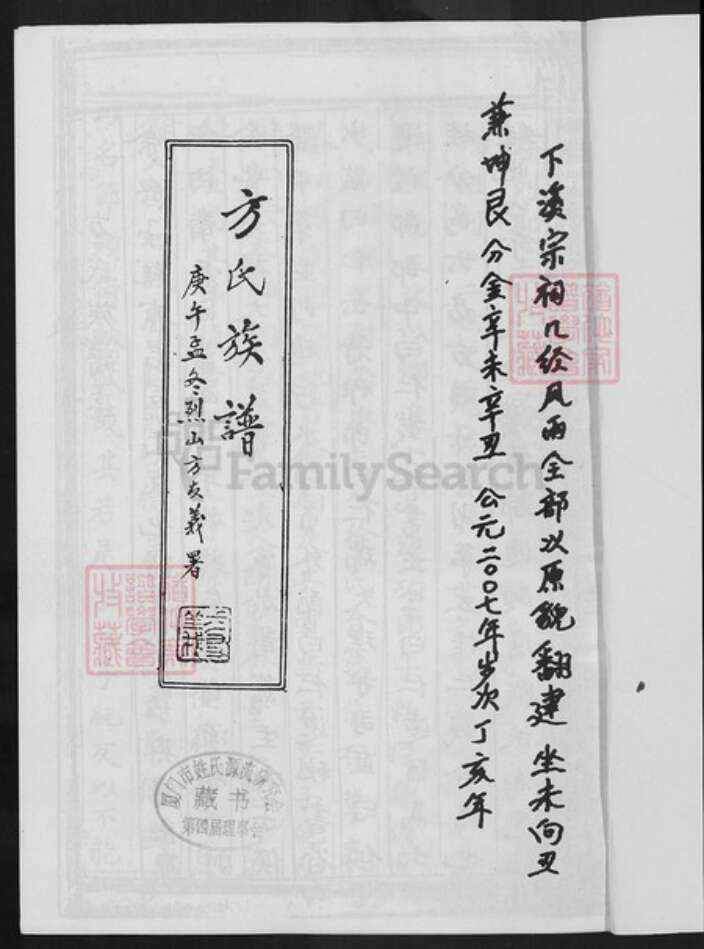 下溪宗祠几经风雨全部以原貌翻建 坐未向丑
兼坤艮分金辛未辛丑 公元二〇〇七年岁次丁亥年
方氏族譜
庚午孟冬烈山方友義署
厦门市姓氏源流研究会
藏书
第四届理事会
FamilySearch